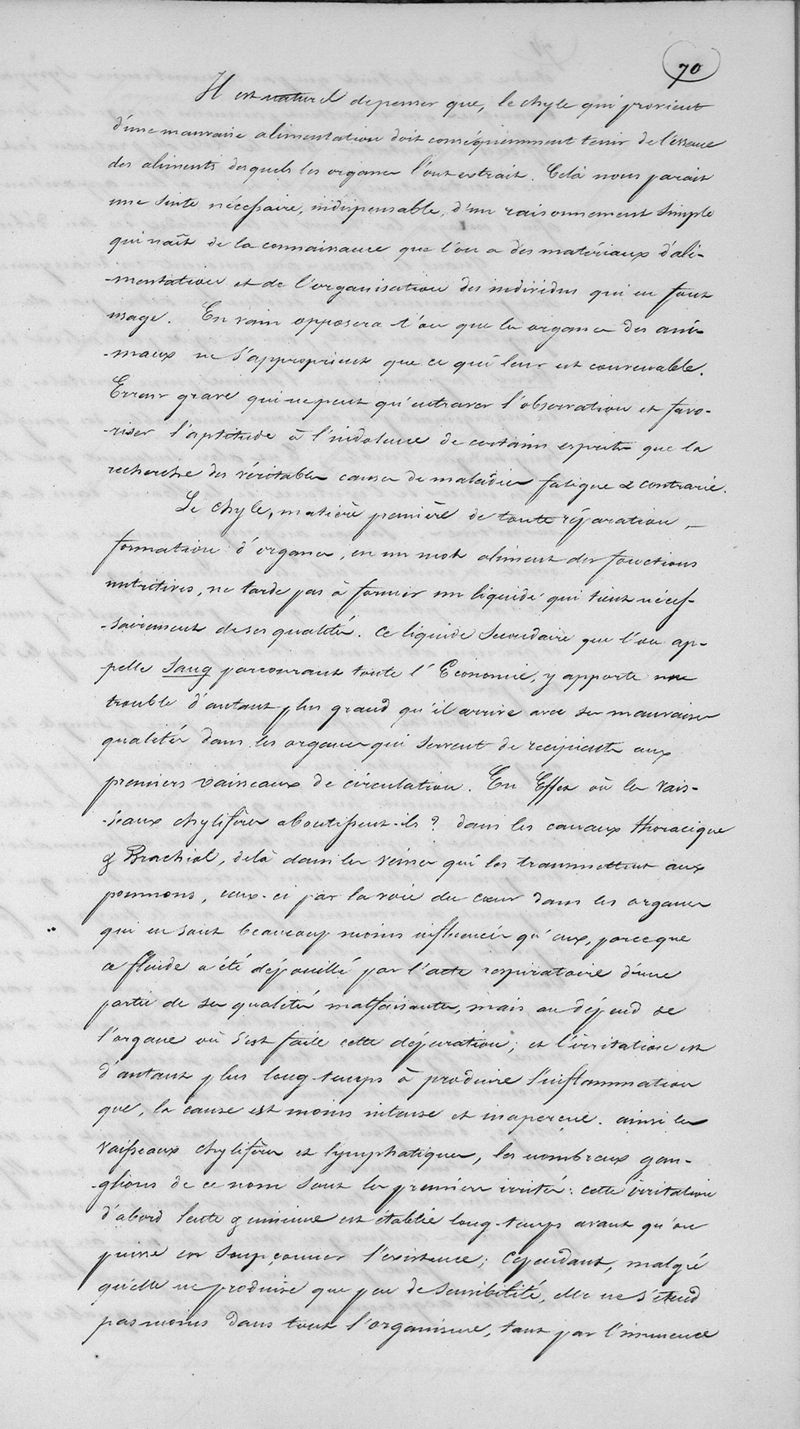 70
Il est naturel de penser que, le chyle qui provient
d'une mauvaise alimentation doit conséquemment tenir de l'essence
des aliments desquels les organes l'ont extrait. Celà nous parait
une suite nécessaire, indispensable, d'un raisonnement simple
qui naît de la connaissance que l'on a des matériaux d'ali-
-mentation et de l'organisation des individus qui en font
usage. En vain opposera t'on que les organes des ani-
-maux ne s'approprient que ce qui leur est convenable.
Erreur grave qui ne peut qu'entraver l'observation et favo-
-riser l'aptitude à l'indolence de certains esprits que la
recherche des véritables causes de maladies fatigue & contrarie.
Le chyle, matière première de toute réparation, _
formation d'organes, en un mot aliment des fonctions
nutritives, ne tarde pas à former un liquide qui tient néces-
-sairement de ses qualités. Ce liquide secondaire que l'on ap-
-pelle sang parcourant toute l'Economie, y apporte un
trouble d'autant plus grand qu'il arrive avec ses mauvaises
qualités dans les organes qui servent de recipients aux
premiers vaisseaux de circulation. En Effet où les vais-
-seaux chylifères aboutissent-ils? dans les canaux thoracique
& Brachial, delà dans les veines qui les transmettent aux
poumons, ceux-ci par la voie du cœur dans les organes
qui en sont beaucoup moins influencés qu'eux, parceque
ce fluide a été dépouillé par l'acte respiratoire d'une
partie de ses qualités malfaisantes, mais au dépend de
l'organe où s'est faite cette dépuration; et l'irritation est
d'autant plus long-temps à produire l'inflammation
que, la cause est moins intense et inaperçue. ainsi les
vaisseaux chylifères et lymphatiques, les nombreux gan-
-glions de ce nom sont les premiers irrités: cette irritation
d'abord lente & minime est établie long-temps avant qu'on
puisse en soupçonner l'existence; Cependant, malgré
qu'elle ne produise que peu de sensibilité, elle ne s'étend
pas moins dans tout l'organisme, tant par l'immense